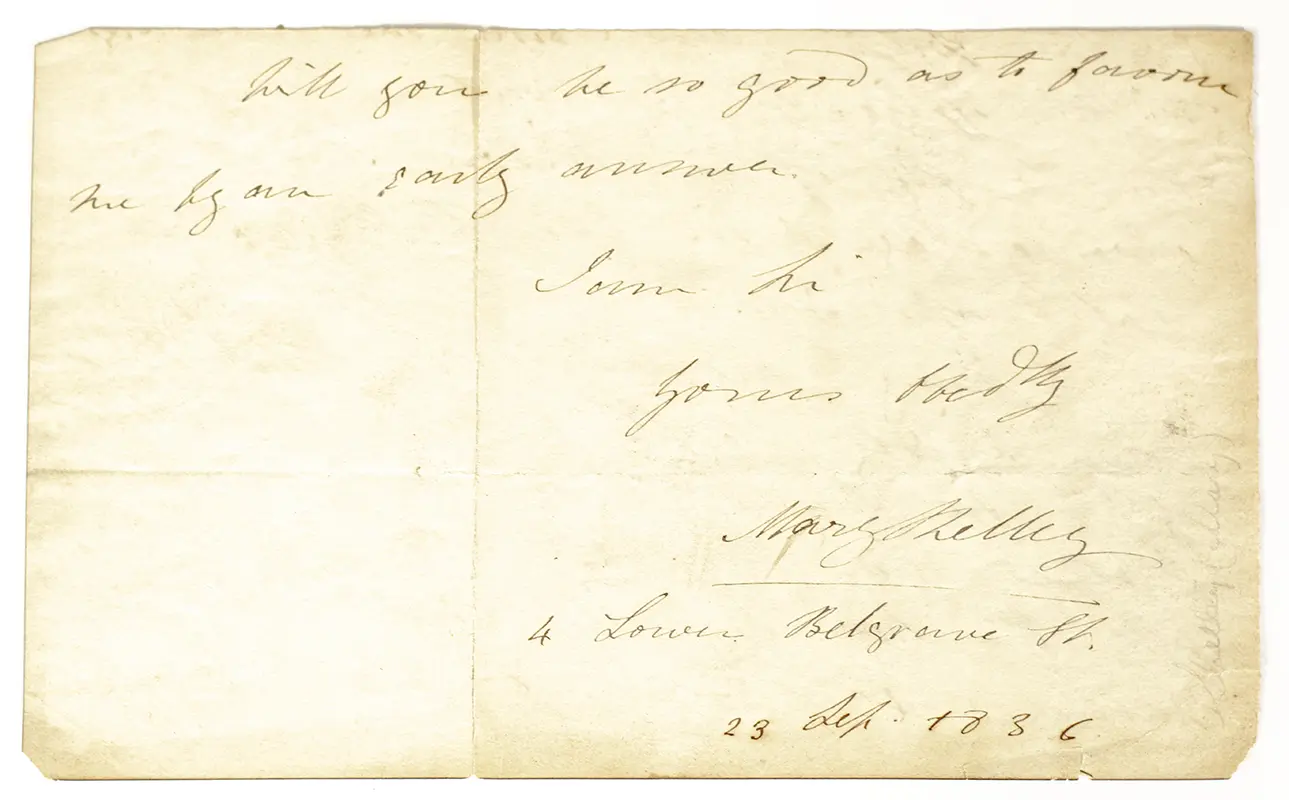 Will you be so good as to favour
me by an early answer.
I am Sir
Yours Obedtly
Mary Shelley
4 Lower Belgrave St.
23 Sep. 1836
Shelley (Mary)